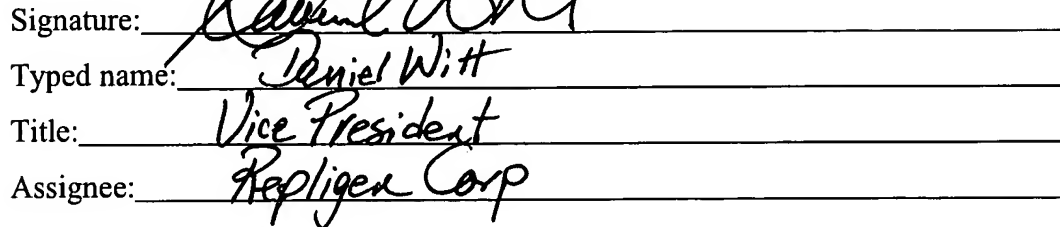 Signature:
Typed name: Daniel Witt
Title: Vice President
Assignee: Repligen Corp